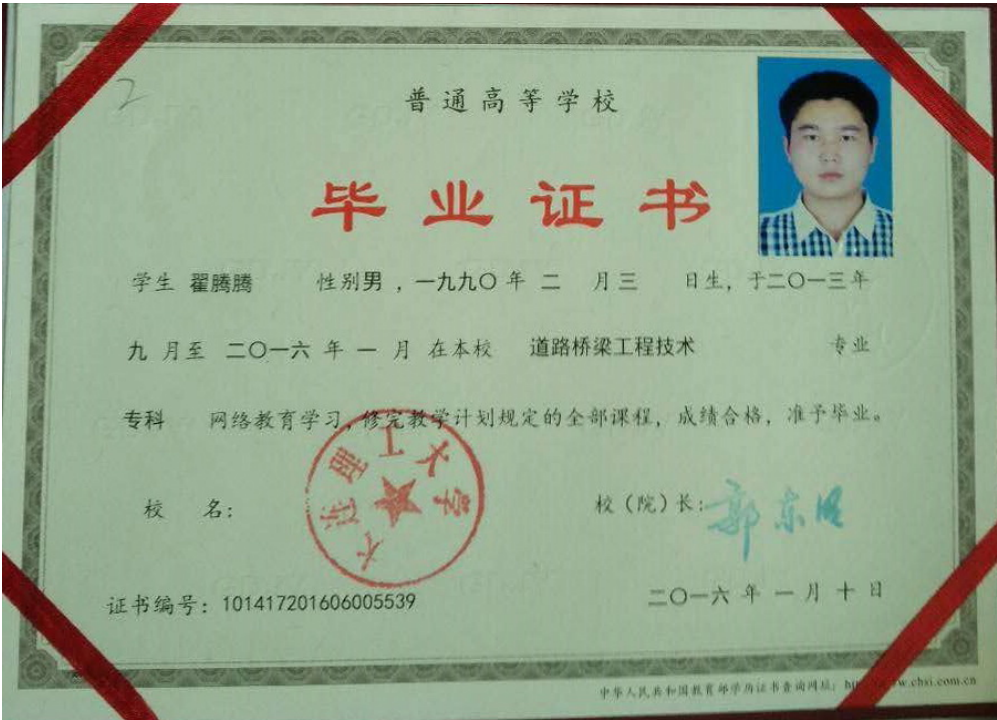 2
普通高等学校
毕业证书
学生 翟腾腾 性别男，一九九〇年 二 月三 日生，于二〇一三年
九 月至 二〇一六 年 一 月 在本校 道路桥梁工程技术 专业
专科 网络教育学习，修完教学计划规定的全部课程，成绩合格，准予毕业。
大连理工大学
校 名：
校（院）长：郭东明
证书编号：101417201606005539
二〇一六 年 一 月 十 日
中华人民共和国教育部学历证书查询网址：w.chsi.com.cn